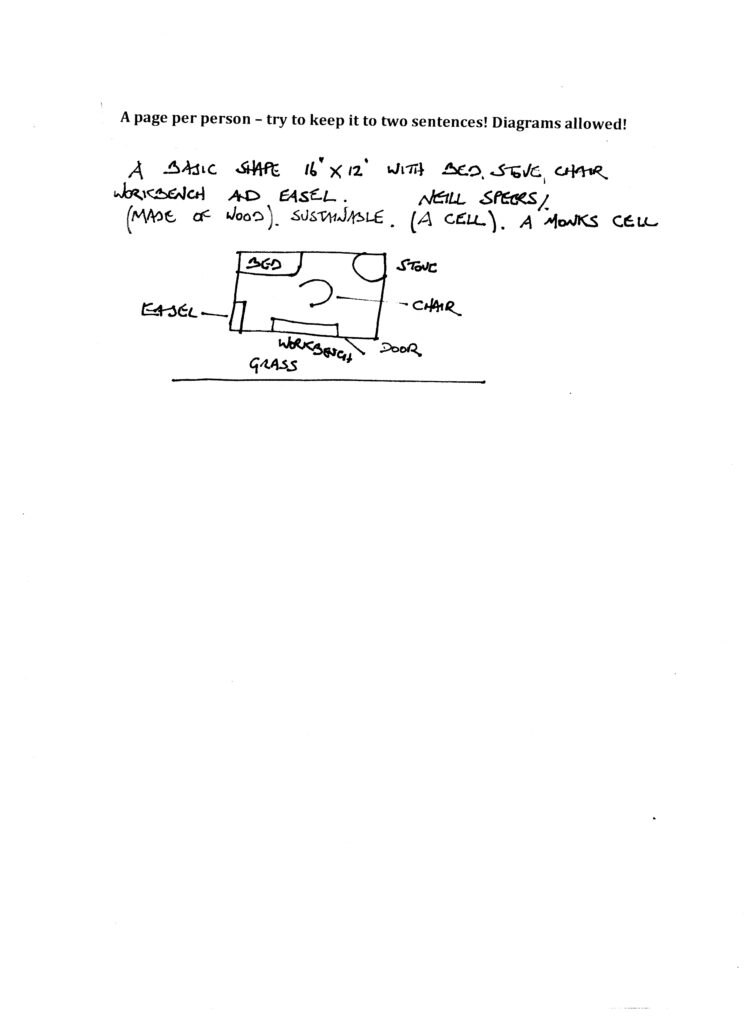 A page per person – try to keep it to two sentences! Diagrams allowed!
A BASIC SHAPE 16' X 12' WITH BED, STOVE, CHAIR
WORKBENCH AD EASEL. NEILL SPEERS/.
(MADE OF WOOD). SUSTAINABLE. (A CELL). A MONKS CELL
BED
STOVE
EASEL
CHAIR
WORKBENCH
DOOR
GRASS